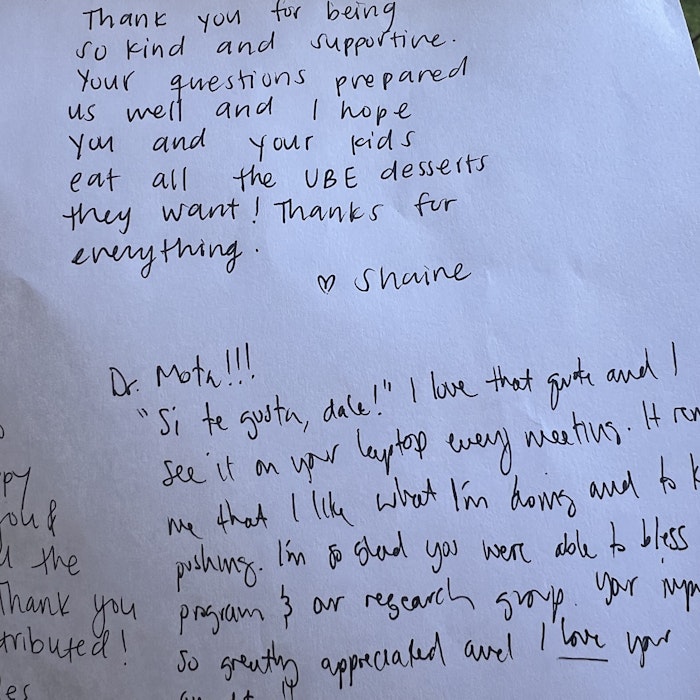 Thank you for being
so kind and supportive.
Your questions prepared
us well and I hope
you and your kids
eat all the UBE desserts
they want! Thanks for
everything.
♡ Shaine
Dr. Mota!!!
"Si te gusta, dale!" I love that quote and I
see it on your laptop every meeting. It
me that I like what I'm doing and to
pushing. I'm so glad you were able to bless
program & our research group. Your
so greatly appreciated and I love your
you &
the
Thank you
tributed!